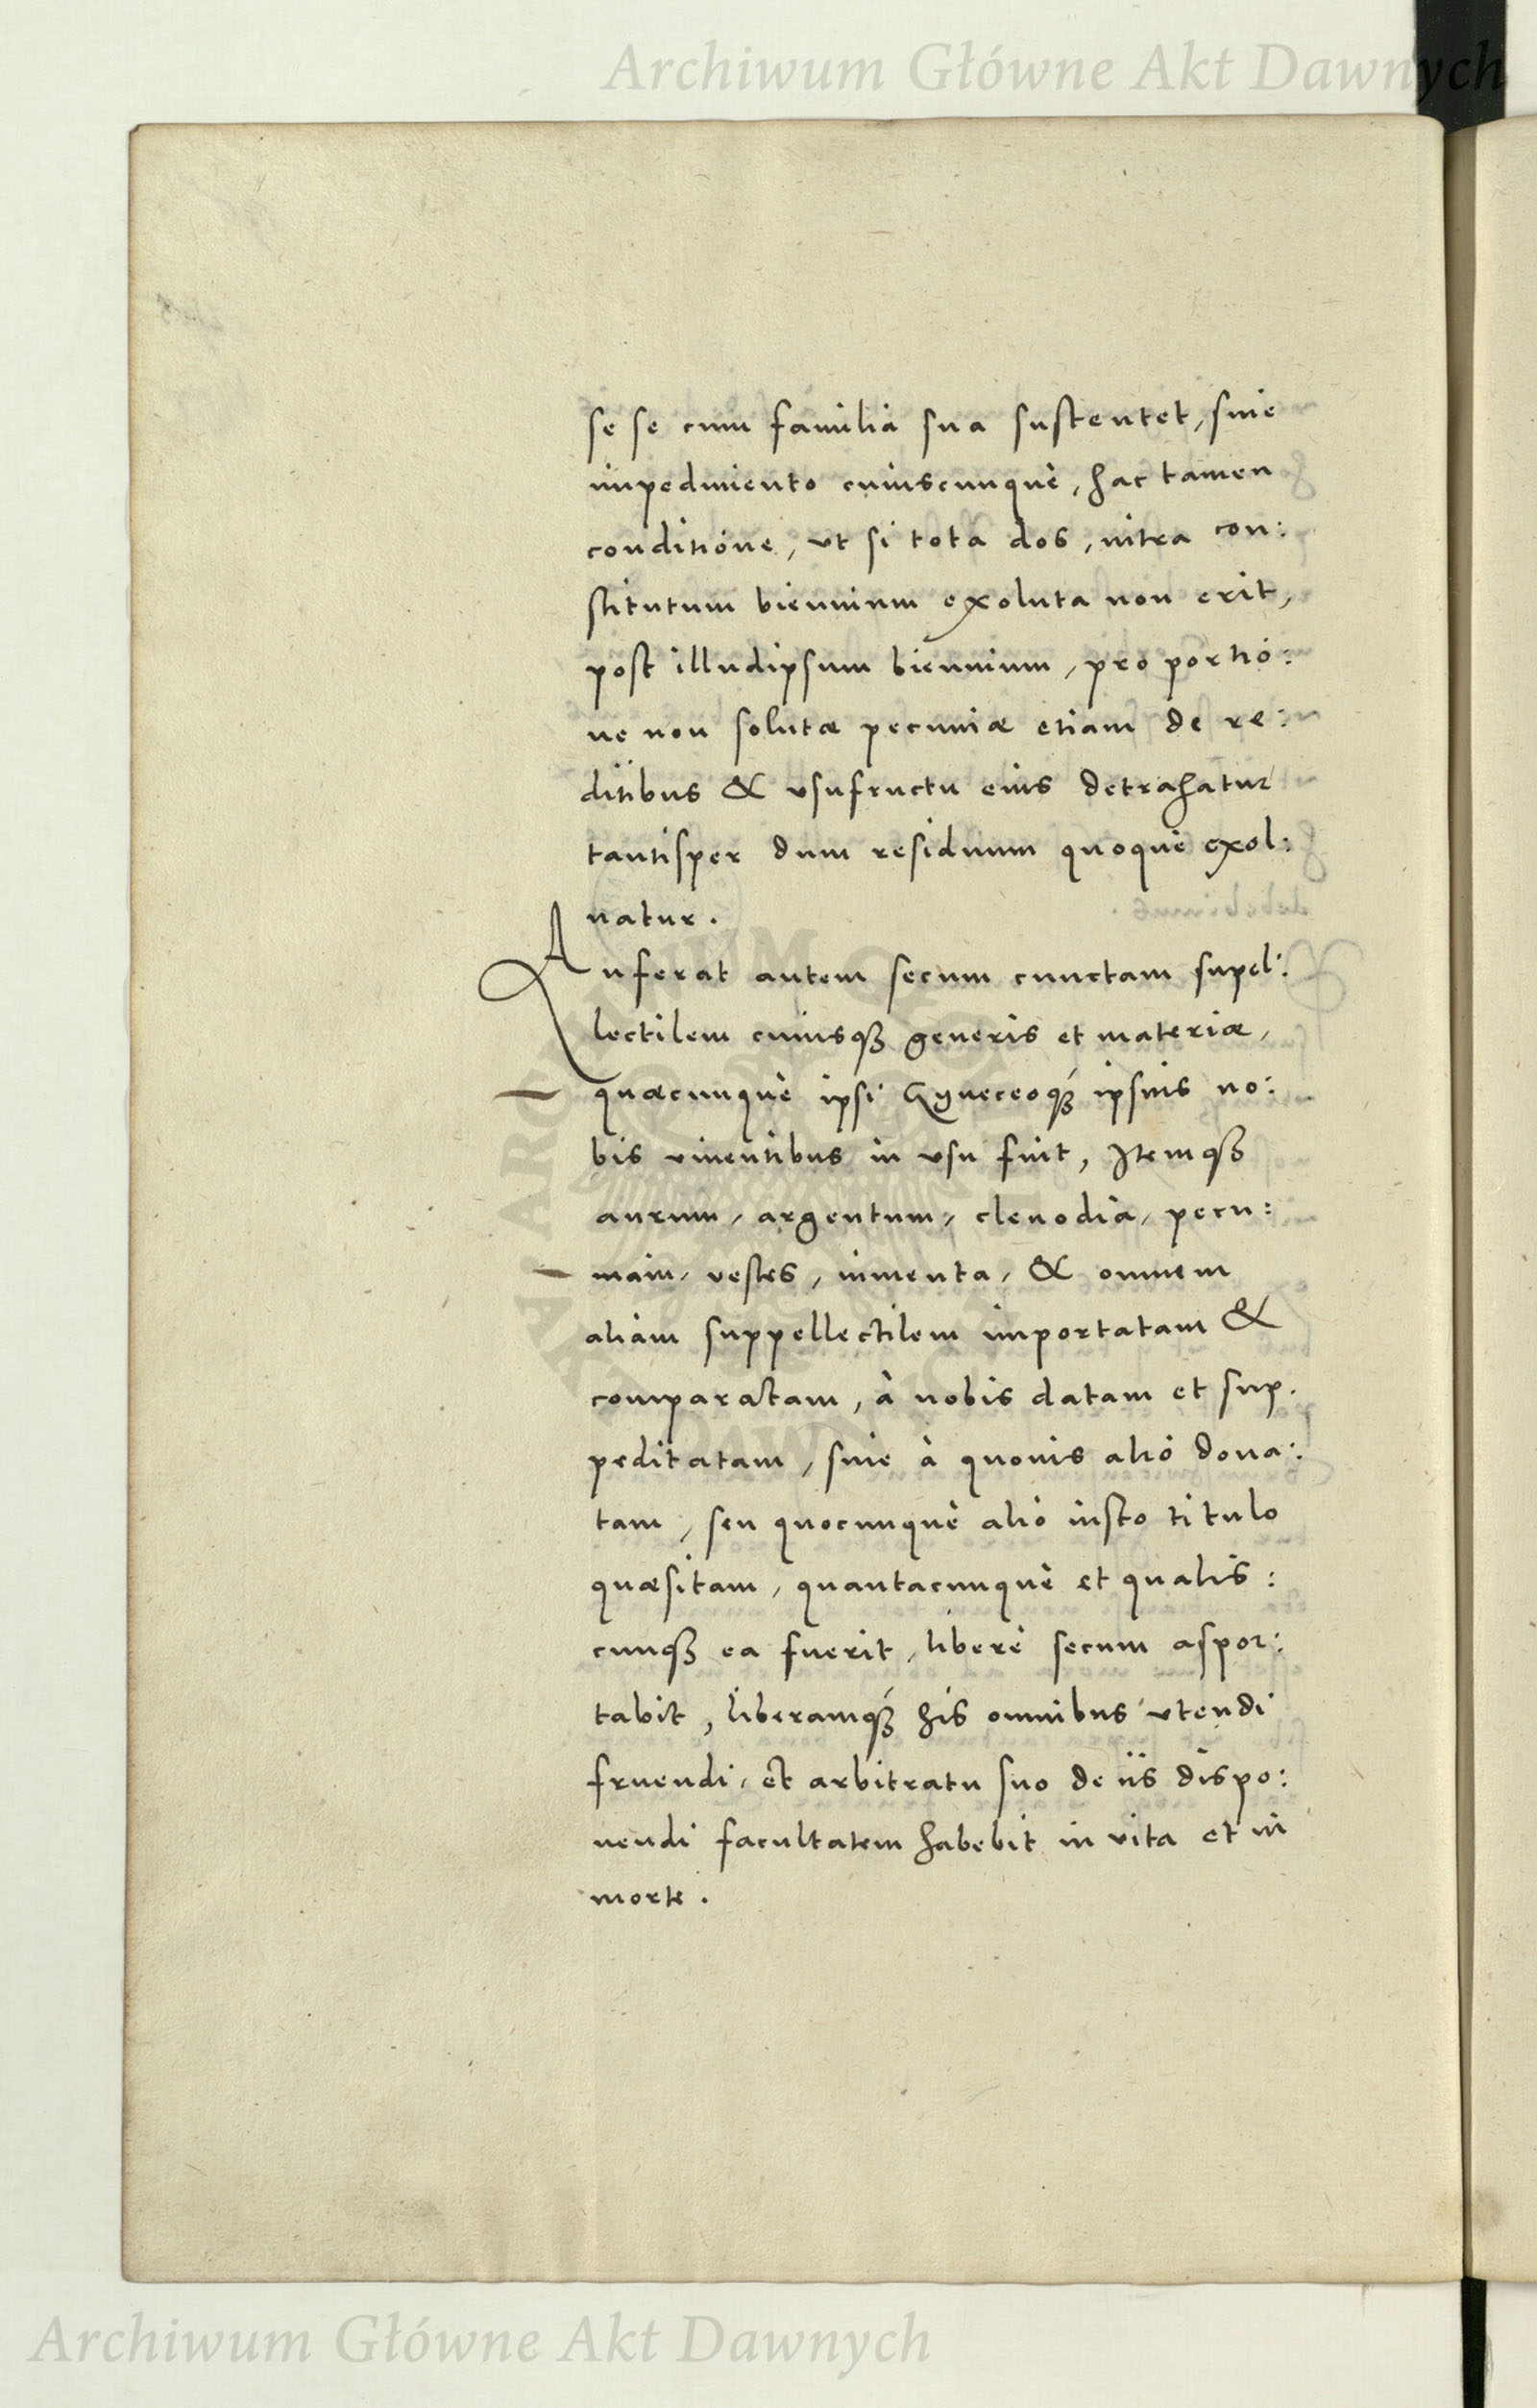 Archiwum Główne Akt Dawnych
se se cum familia sua sustentet, siue
impedimento cuiuscunquè, hac tamen
conditione, vt si tota dos, intra con:
stitutum biennium exoluta non erit,
post illudipsum biennium, pro portio:
ne non solutæ pecuniæ etiam de re:
ditibus & vsufructu eius detrahatur
tantisper dum residuum quoquè exol:
uatur.
Auferat autem secum cunctam supel:
lectilem cuiusqꝫ generis et materiæ,
quæcunquè ipsi Gyneceoqꝫ ipsius no:
bis viuentibus in vsu fuit, Itemqꝫ
aurum, argentum, clenodia, pecu:
niam, vestes, iumenta, & omnem
aliam suppellectilem importatam &
comparatam, à nobis datam et sup.
peditatam, siue à quouis alio dona:
tam, seu quocunquè alio iusto titulo
quæsitam, quantacunquè et qualis:
cunqꝫ ea fuerit, liberè secum aspor:
tabit, liberamqꝫ his omnibus vtendi
fruendi, et arbitratu suo de iis dispo:
nendi facultatem habebit in vita et in
morte.
Archiwum Główne Akt Dawnych